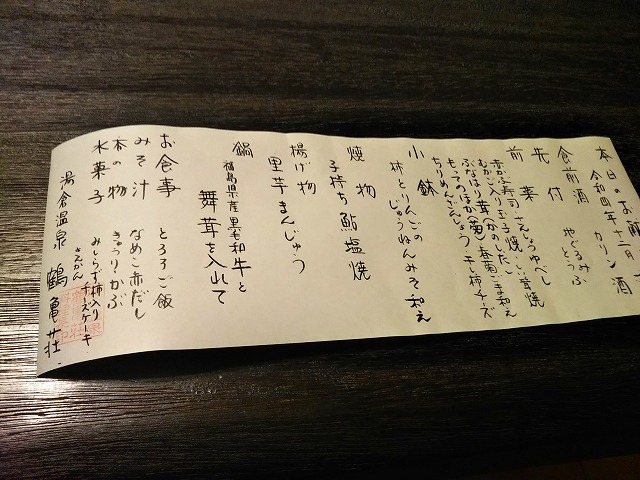 本日のお前
令和四年十二月
食前酒 カリン酒
先付 地ぐるみとうふ
前菜
赤かぶ寿司・さんしょうゆべし
むかごいり玉子焼・しいたけ釜焼
ぶなはり茸かのこだし
もってのほか(菊)春菊ごま和え
ちりめんさんしょう 干し柿チーズ
小鉢
柿とりんごの
じゅうねんみそ和え
焼物
子持ち鮎塩焼
揚げ物
里芋まんじゅう
鍋
福島県産黒毛和牛と
舞茸を入れて
お食事 とろろご飯
みそ汁 なめこ赤だし
香の物 きゅうりかぶ
水菓子 みしらず柿入り
チーズケーキ
湯倉温泉 鶴亀荘